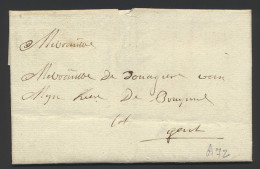 Mevrouwe
Mevrouwe de Douagiere van
Mijn Heer De
tot
gent
A72